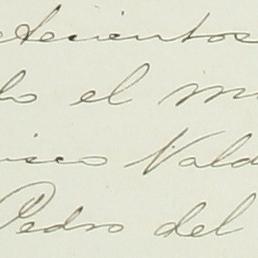 etecientos
do el m
isco Vald
Pedro del